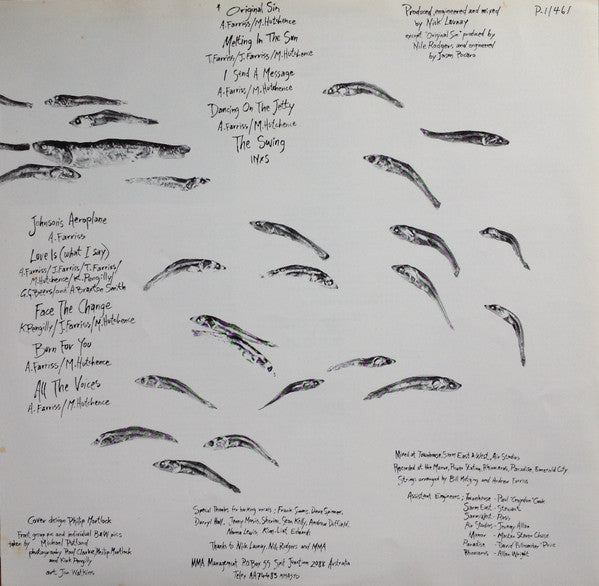 Original Sin
A. Farriss/M. Hutchence
Melting In The Sun
T. Farriss/J. Farriss/M. Hutchence
I Send A Message
A. Farriss/M. Hutchence
Dancing On The Jetty
A. Farriss/M. Hutchence
The Swing
INXS
Produced, engineered and mixed
by Nick Launay
except "Original Sin" produced by
Nile Rodgers, and engineered
by Jason
P.1/461
Johnson's Aeroplane
A. Farriss
Love Is (what I say)
A. Farriss/J. Farriss/T. Farriss/
M. Hutchence/K. Pengilly/
G.G Beers/and A. Braxton Smith
Face The Change
K. Pengilly/J. Farriss/M. Hutchence
Burn For You
A. Farriss/M. Hutchence
All The Voices
A. Farriss/M. Hutchence
Mixed at Townhouse, Sarm East & West, Air Studios
Recorded at the Manor, Power Station, Rhinoceros, Paradise, Emerald City
Strings arranged by Bill Motzing and Andrew Farriss
Assistant Engineers; Townhouse - Paul 'Croydon' Cook
Sarm East - Stewart
Sarm West - Ross
Air Studios - Jeremy Allom
Manor - Martin Steven Chase
Paradise - David Price
Rhinoceros - Allan Wright
Cover design Philip Mortlock
Front, group pic and individual B&W pics
taken by Michael Putland
photography Paul Clarke, Philip Mortlock
and Kirk Pengilly
art: Jim Watkins
Special thanks for backing vocals - Frank Simms, Dave Spinner,
Daryl Hall, Jenny Morris, Sherine, Sean Kelly, Andrew Duffield,
Norma Lewis
Thanks to Nick Launay, Nile Rodgers and MMA
MMA Management PO Box 55 Spit Junction 2088 Australia